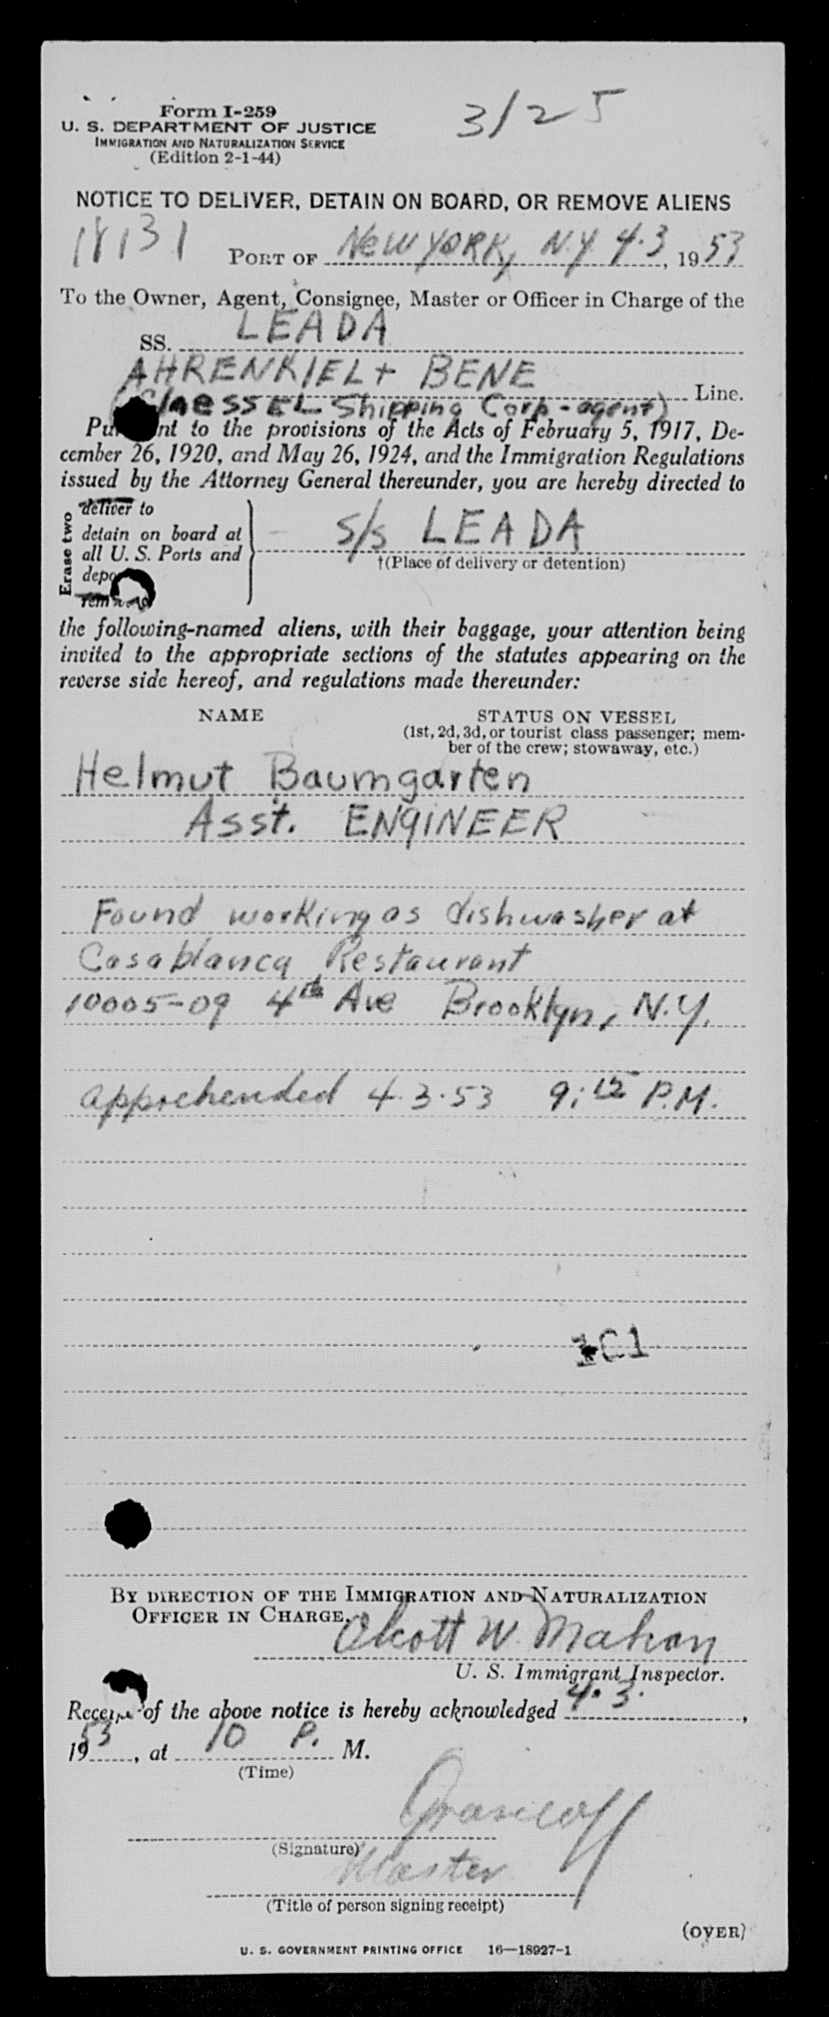 Form I-259
3/25
U. S. DEPARTMENT OF JUSTICE
IMMIGRATION AND NATURALIZATION SERVICE
(Edition 2-1-44)
NOTICE TO DELIVER, DETAIN ON BOARD, OR REMOVE ALIENS
18131
PORT OF New York, N.Y. 4-3, 1953
To the Owner, Agent, Consignee, Master or Officer in Charge of the
SS. LEADA
AHRENKIEL + BENE Line.
(Claessel Shipping Corp - agent)
Pu nt to the provisions of the Acts of February 5, 1917, De-
cember 26, 1920, and May 26, 1924, and the Immigration Regulations
issued by the Attorney General thereunder, you are hereby directed to
Erase two
deliver to
detain on board at
all U. S. Ports and
depo
S/S LEADA
†(Place of delivery or detention)
the following-named aliens, with their baggage, your attention being
invited to the appropriate sections of the statutes appearing on the
reverse side hereof, and regulations made thereunder:
NAME
STATUS ON VESSEL
(1st, 2d, 3d, or tourist class passenger; mem-
ber of the crew; stowaway, etc.)
Helmut Baumgarten
Asst. ENGINEER
Found working as dishwasher at
Casablanca Restaurant
10005-09 4th Ave Brooklyn, N.Y.
apprehended 4.3.53 9:15 P.M.
BY DIRECTION OF THE IMMIGRATION AND NATURALIZATION
OFFICER IN CHARGE.
Olcott W. Mahon
U. S. Immigrant Inspector.
Receipt of the above notice is hereby acknowledged 4. 3.,
1953, at 10 P. M.
(Time)
(Signature)
Master
(Title of person signing receipt)
(OVER)
U. S. GOVERNMENT PRINTING OFFICE 16—18927-1